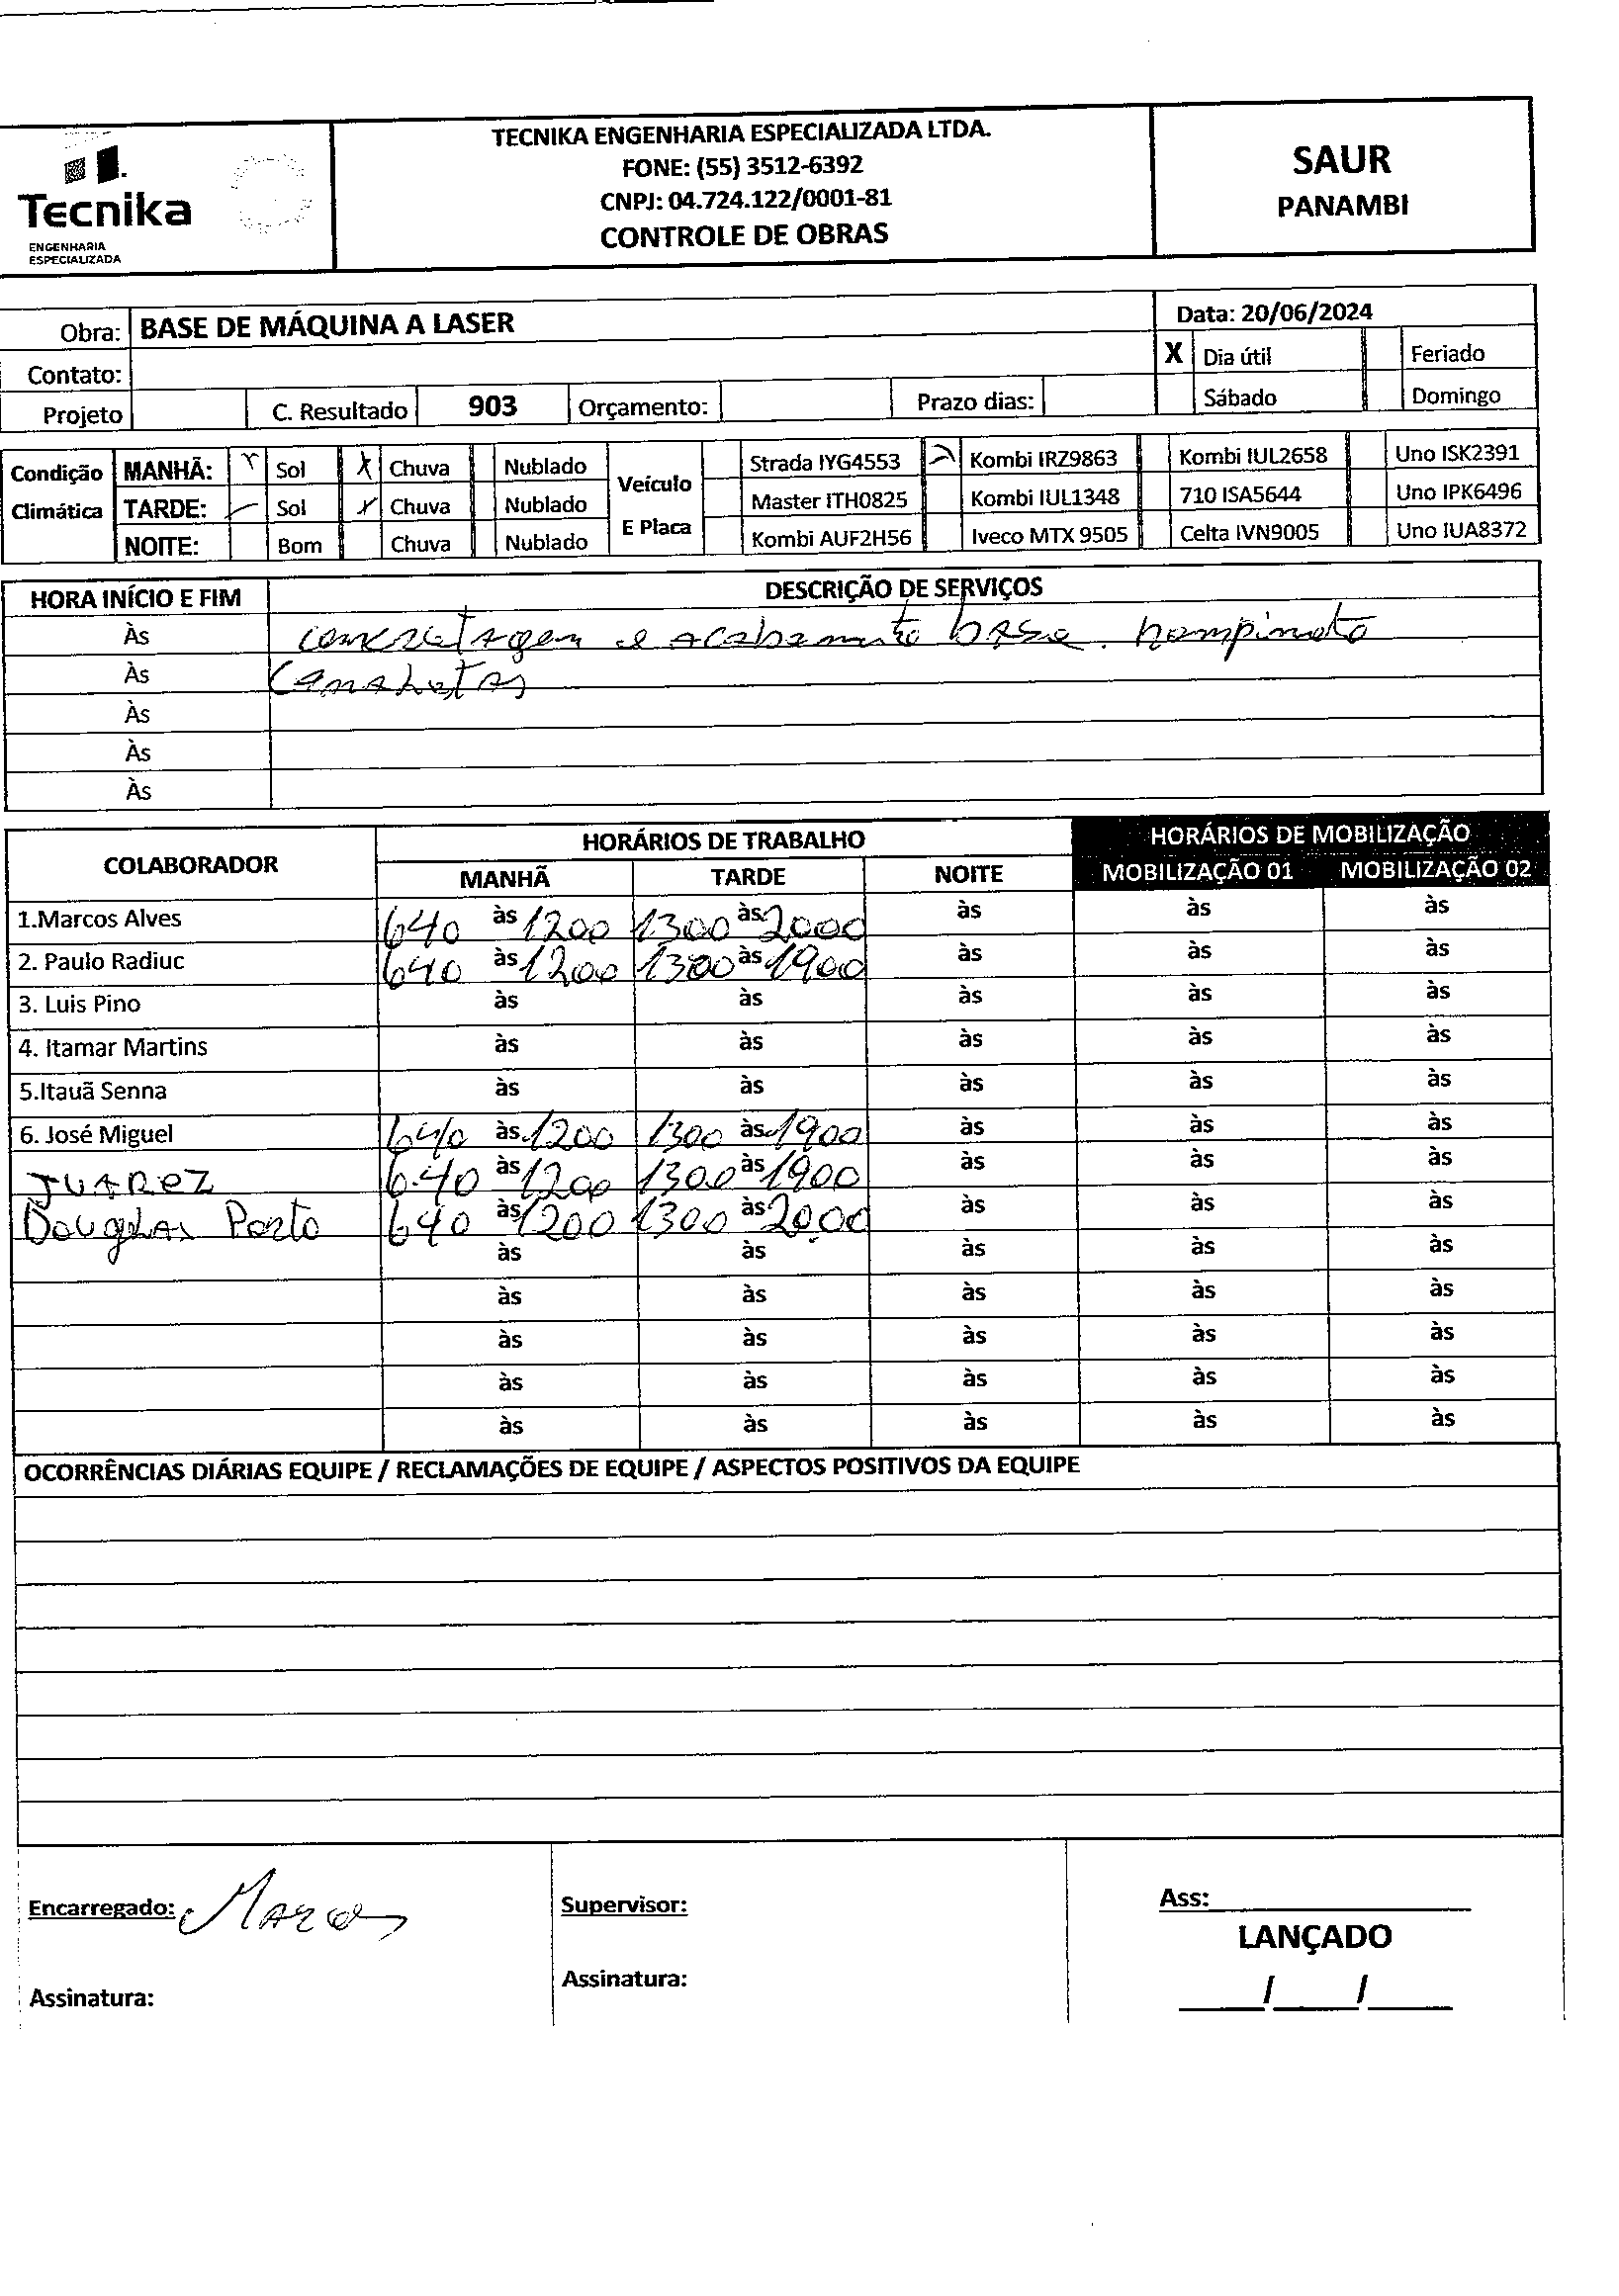 Tecnika
ENGENHARIA
ESPECIALIZADA
TECNIKA ENGENHARIA ESPECIALIZADA LTDA.
FONE: (55) 3512-6392
CNPJ: 04.724.122/0001-81
CONTROLE DE OBRAS
SAUR
PANAMBI
Obra: BASE DE MÁQUINA A LASER
Data: 20/06/2024
Contato:
X Dia útil Feriado
Projeto C. Resultado 903 Orçamento: Prazo dias:
Sábado Domingo
Condição Climática
MANHÃ: Sol X Chuva Nublado
TARDE: Sol Chuva Nublado
NOITE: Bom Chuva Nublado
Veículo E Placa
Strada IYG4553 Kombi IRZ9863 Kombi IUL2658 Uno ISK2391
Master ITH0825 Kombi IUL1348 710 ISA5644 Uno IPK6496
Kombi AUF2H56 Iveco MTX 9505 Celta IVN9005 Uno IUA8372
HORA INÍCIO E FIM DESCRIÇÃO DE SERVIÇOS
Às concretagem e acabamento base.
Às
Às
Às
Às
COLABORADOR HORÁRIOS DE TRABALHO HORÁRIOS DE MOBILIZAÇÃO
MANHÃ TARDE NOITE MOBILIZAÇÃO 01 MOBILIZAÇÃO 02
1.Marcos Alves 640 às 1200 1300 às 2000 às às às
2. Paulo Radiuc 640 às 1200 1300 às 1900 às às às
3. Luis Pino às às às às às
4. Itamar Martins às às às às às
5.Itauã Senna às às às às às
6. José Miguel 640 às 1200 1300 às 1900 às às às
JUAREZ 6.40 às 1200 1300 às 1900 às às às
Douglas Porto 640 às 1200 1300 às 20.00 às às às
às às às às às
às às às às às
às às às às às
às às às às às
às às às às às
OCORRÊNCIAS DIÁRIAS EQUIPE / RECLAMAÇÕES DE EQUIPE / ASPECTOS POSITIVOS DA EQUIPE
Encarregado: Marcos
Supervisor:
Ass:
LANÇADO
Assinatura:
Assinatura:
/ /